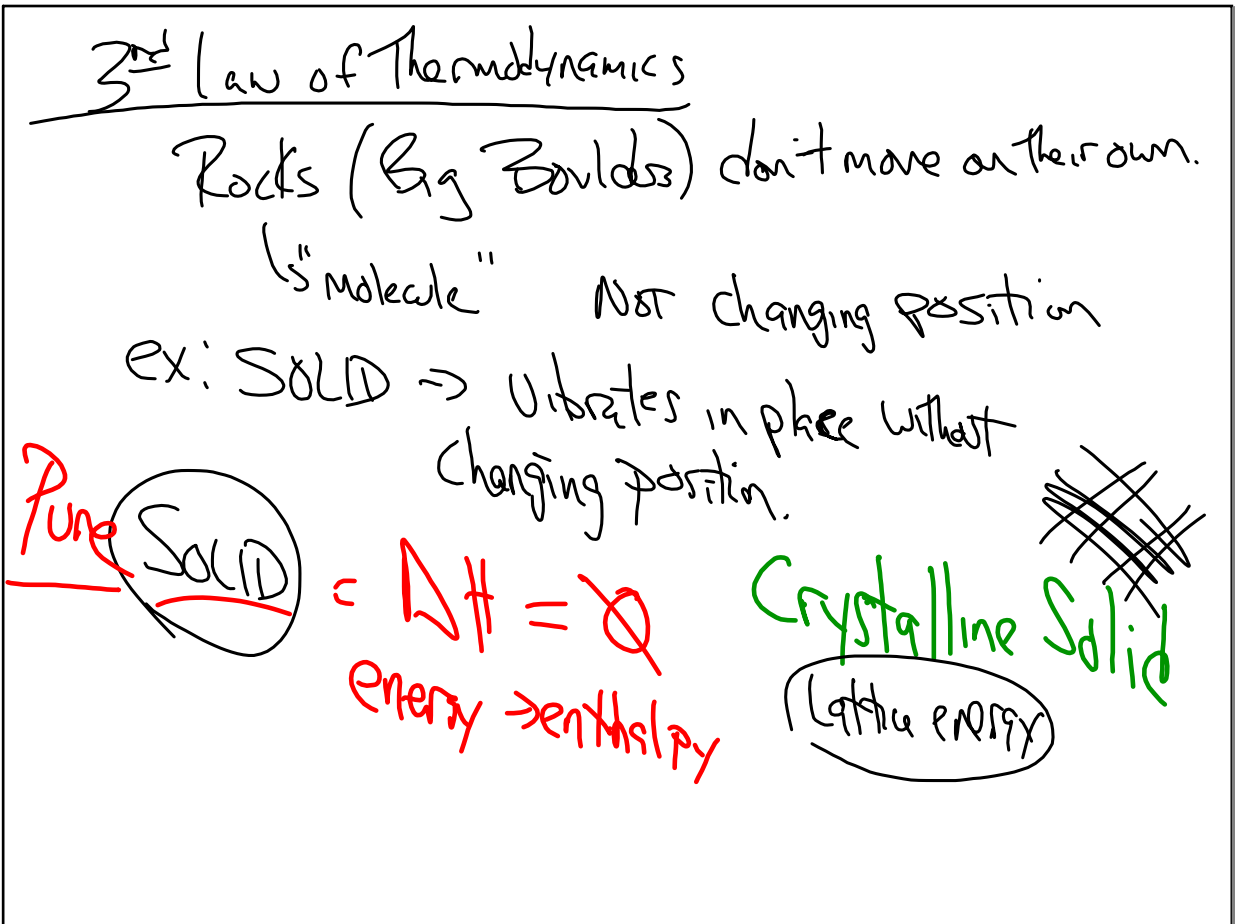 3rd Law of Thermodynamics
Rocks (Big Boulders) don't move on their own.
↳ "molecule" Not changing position
ex: SOLID → Vibrates in place without
changing position.
Pure SOLID = ΔH = Ø
Crystalline Solid
energy → enthalpy
Lattice energy